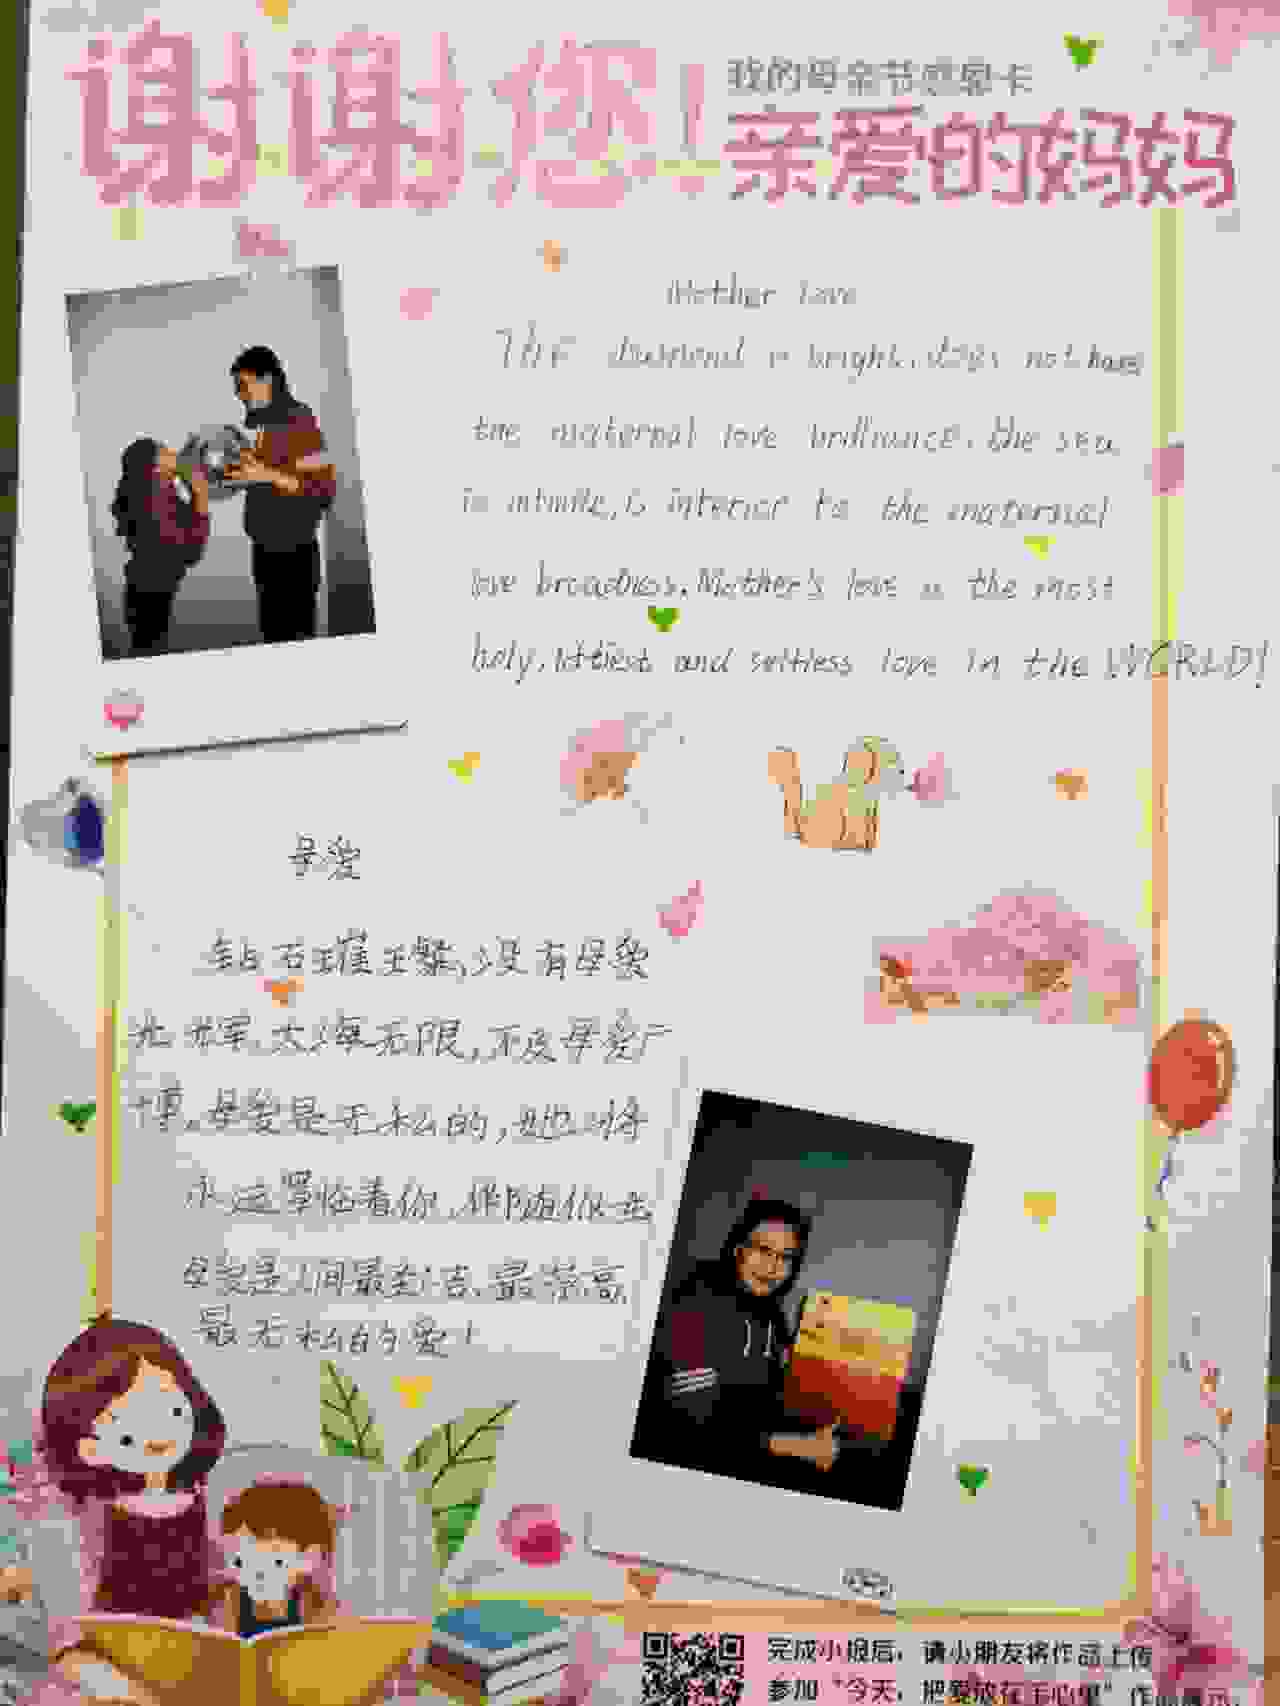 谢谢您!
我的母亲节感恩卡
亲爱的妈妈
Mother love
THE diamond is bright, does not have
the maternal love brilliance. the sea
is infinite, is interior to the maternal
love broadness. Mother's love is the most
holy, loftiest and selfless love in the WORLD!
母爱
钻石璀璨,没有母爱
光辉,大海无限,不及母爱广
博。母爱是无私的,她将
永远罩临着你,伴随你走
母爱是人间最圣洁、最崇高
最无私的爱!
完成小报后,请小朋友将作品上传
参加“今天,把爱放在手心里”作品展示